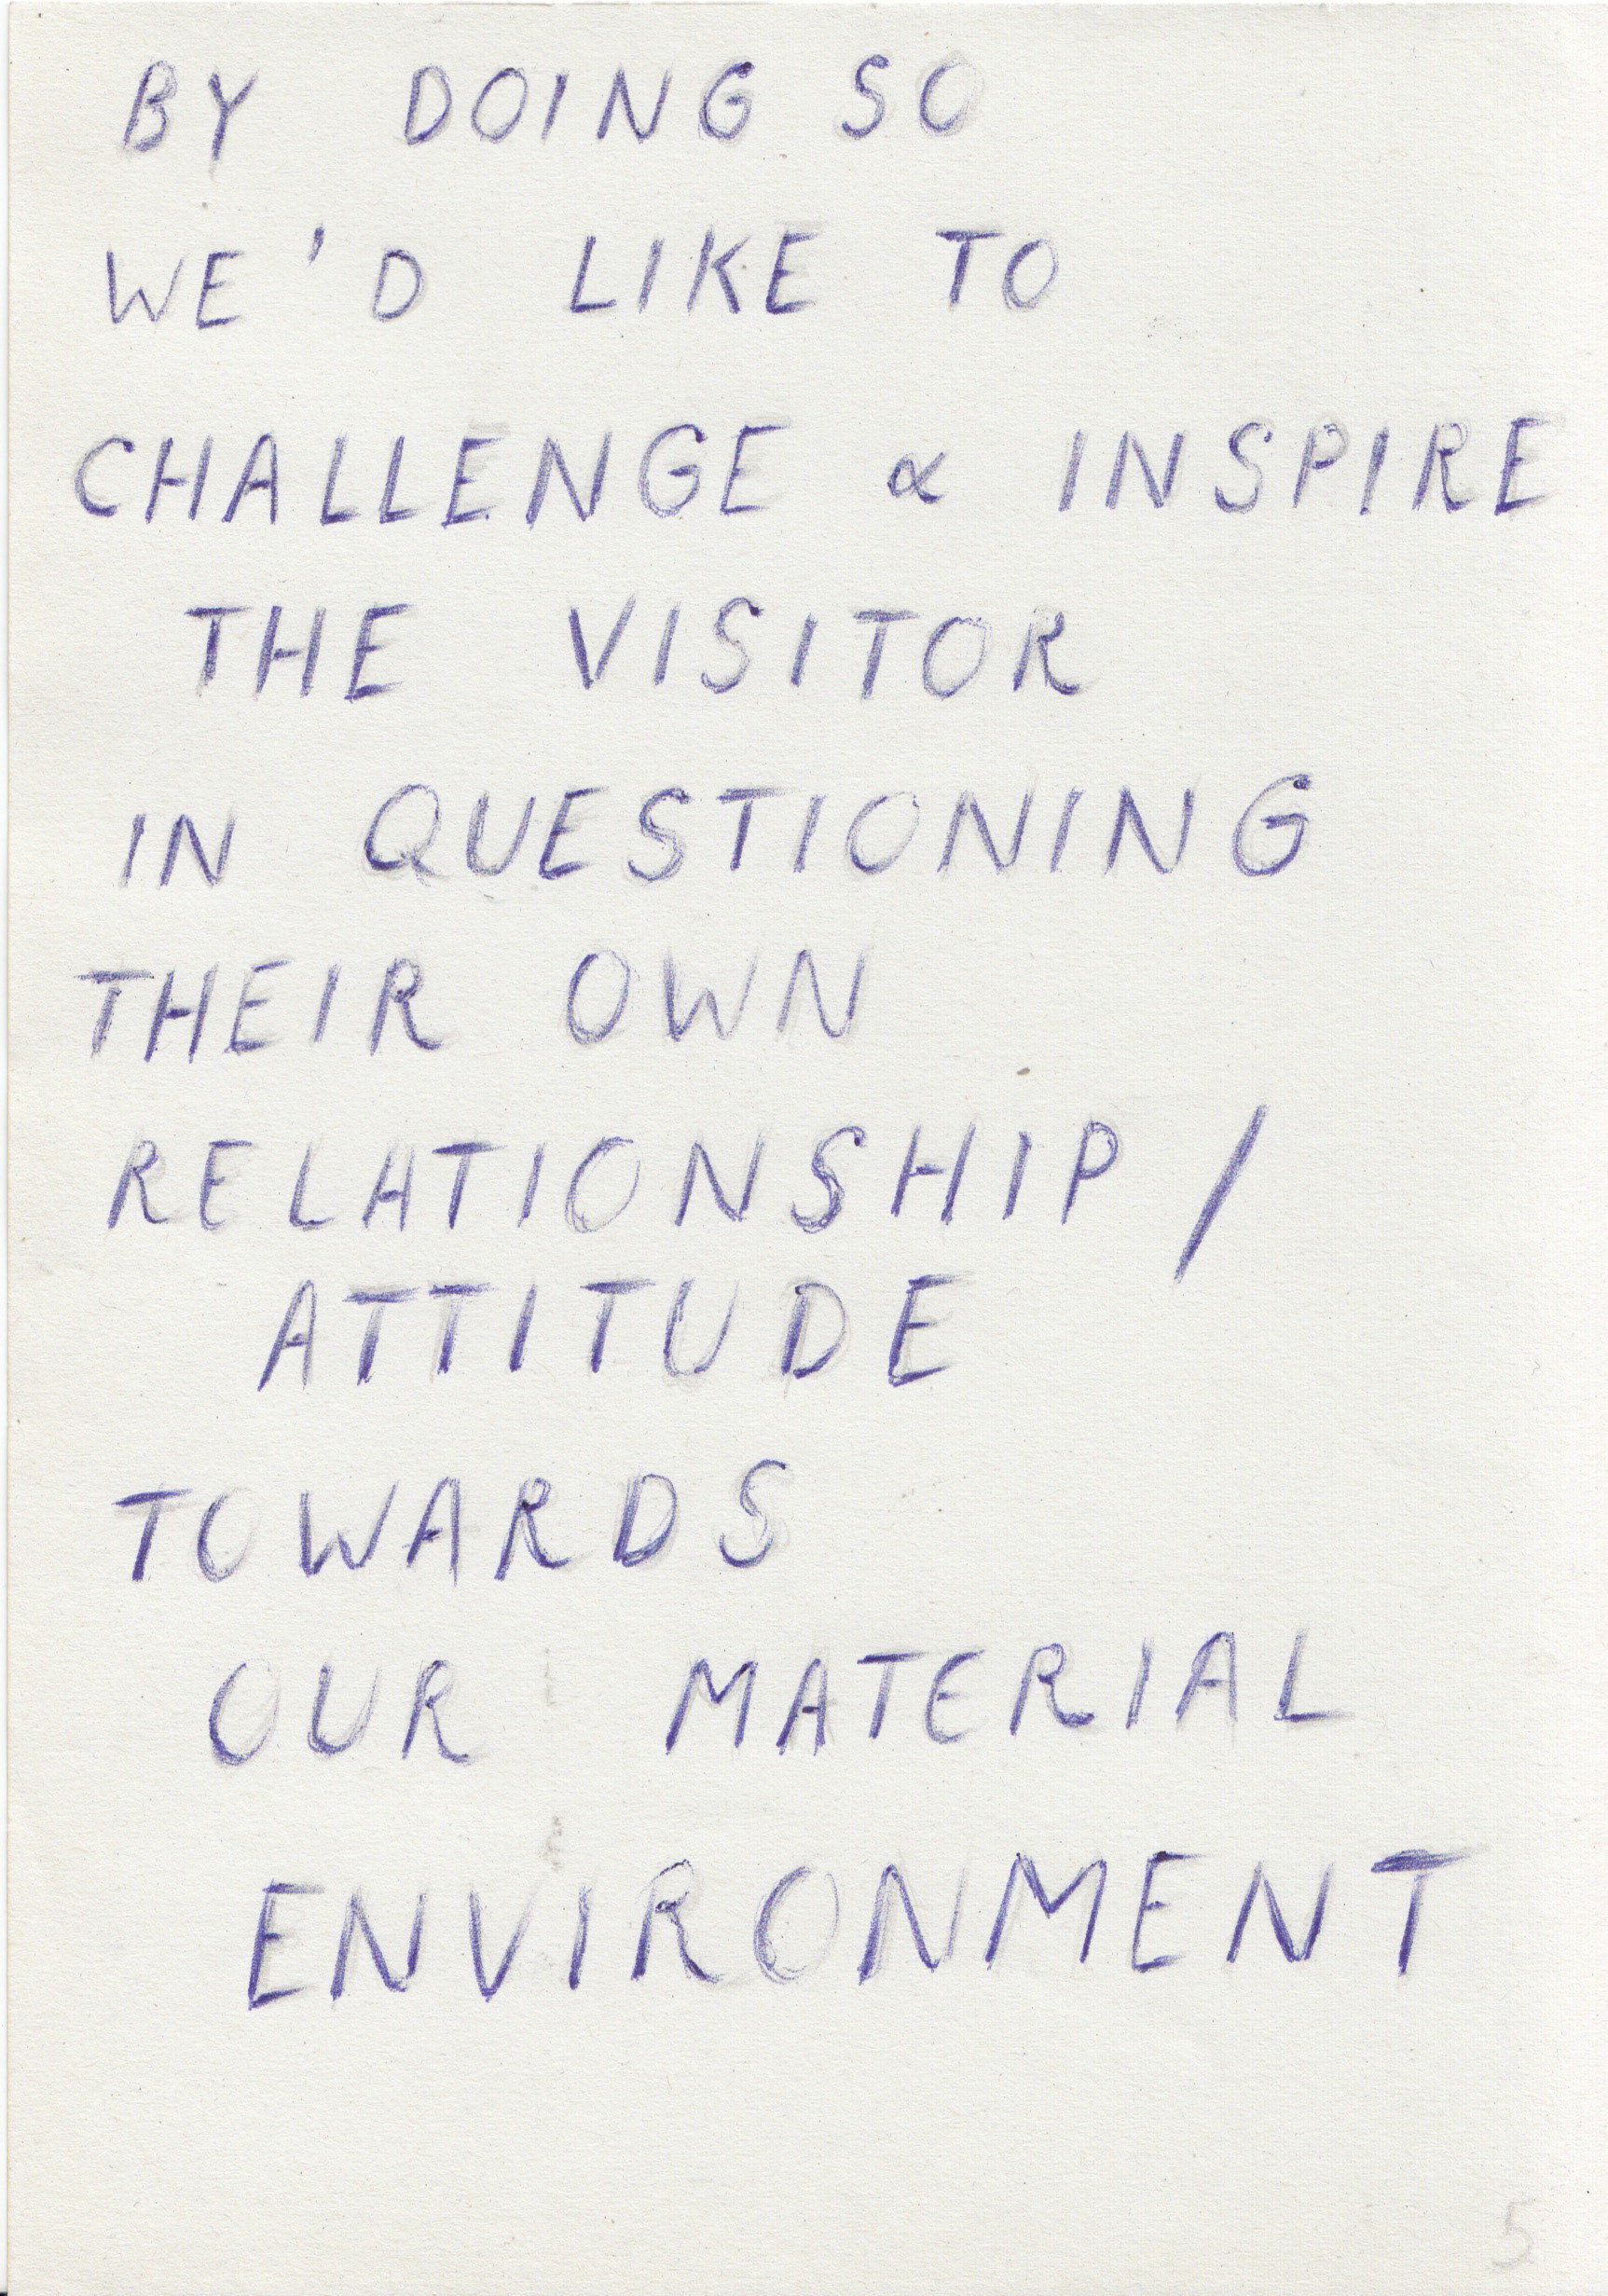 BY DOING SO
WE'D LIKE TO
CHALLENGE & INSPIRE
THE VISITOR
IN QUESTIONING
THEIR OWN
RELATIONSHIP /
ATTITUDE
TOWARDS
OUR MATERIAL
ENVIRONMENT
5